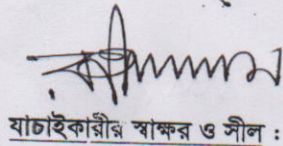 যাচাইকারীর স্বাক্ষর ও সীল :